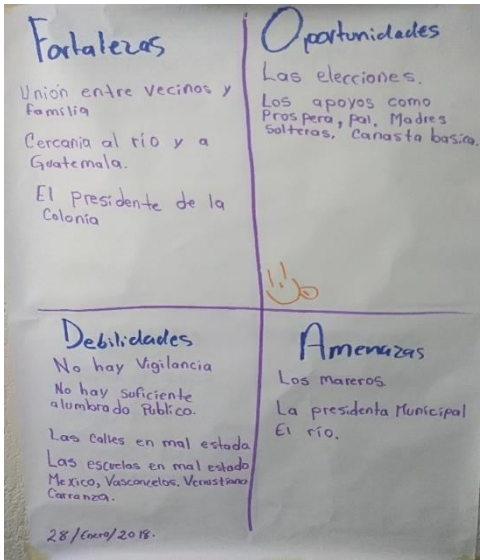 Fortalezas
Unión entre vecinos y
familia
Cercania al río y a
Guatemala.
El presidente de la
Colonia
Oportunidades
Las elecciones.
Los apoyos como
Prospera, pal. Madres
Solteras, Canasta basica.
Debilidades
No hay Vigilancia
No hay Suficiente
alumbrado Publico.
Las Calles en mal estado
Las escuelas en mal estado
Mexico, Vasconcelos, Venustiano
Carranza.
28/Enero/2018.
Amenazas
Los mareros
La presidenta Municipal
El río.